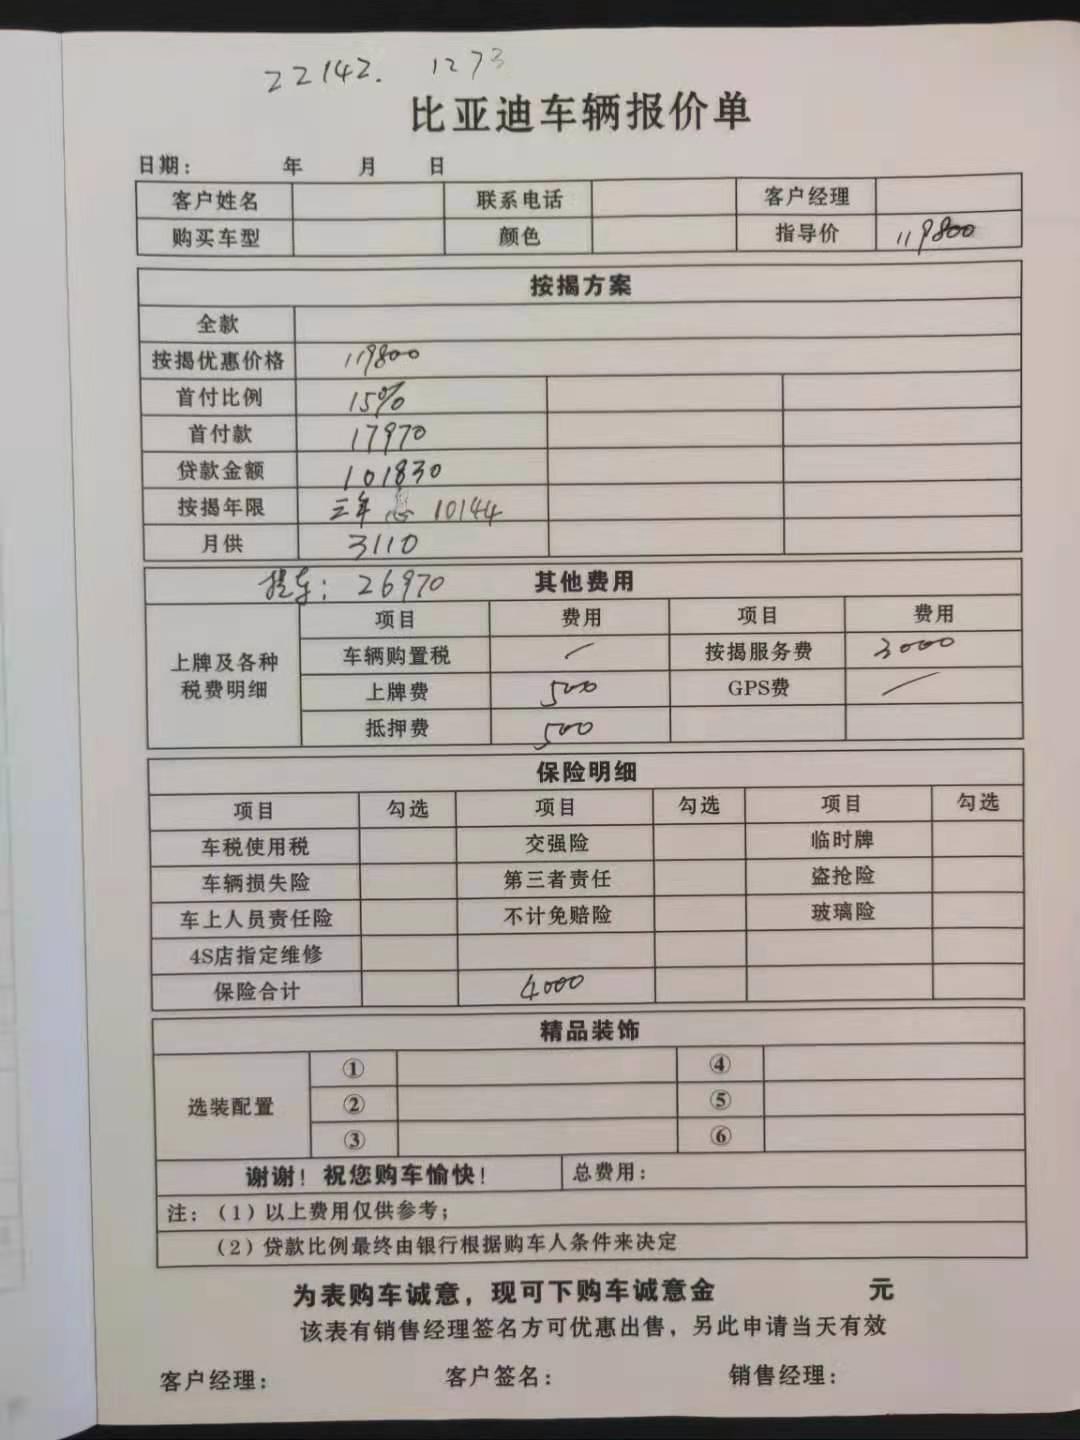 22142. 1273
比亚迪车辆报价单
日期： 年 月 日
客户姓名 联系电话 客户经理
购买车型 颜色 指导价 119800
按揭方案
全款
按揭优惠价格 119800
首付比例 15%
首付款 17970
贷款金额 101830
按揭年限 三年 息 10144
月供 3110
提车：26970 其他费用
上牌及各种税费明细 项目 费用 项目 费用
车辆购置税 / 按揭服务费 3000
上牌费 500 GPS费 /
抵押费 500
保险明细
项目 勾选 项目 勾选 项目 勾选
车税使用税 交强险 临时牌
车辆损失险 第三者责任 盗抢险
车上人员责任险 不计免赔险 玻璃险
4S店指定维修
保险合计 4000
精品装饰
选装配置 ① ④
② ⑤
③ ⑥
谢谢！祝您购车愉快！ 总费用：
注：（1）以上费用仅供参考；
（2）贷款比例最终由银行根据购车人条件来决定
为表购车诚意，现可下购车诚意金 元
该表有销售经理签名方可优惠出售，另此申请当天有效
客户经理： 客户签名： 销售经理：